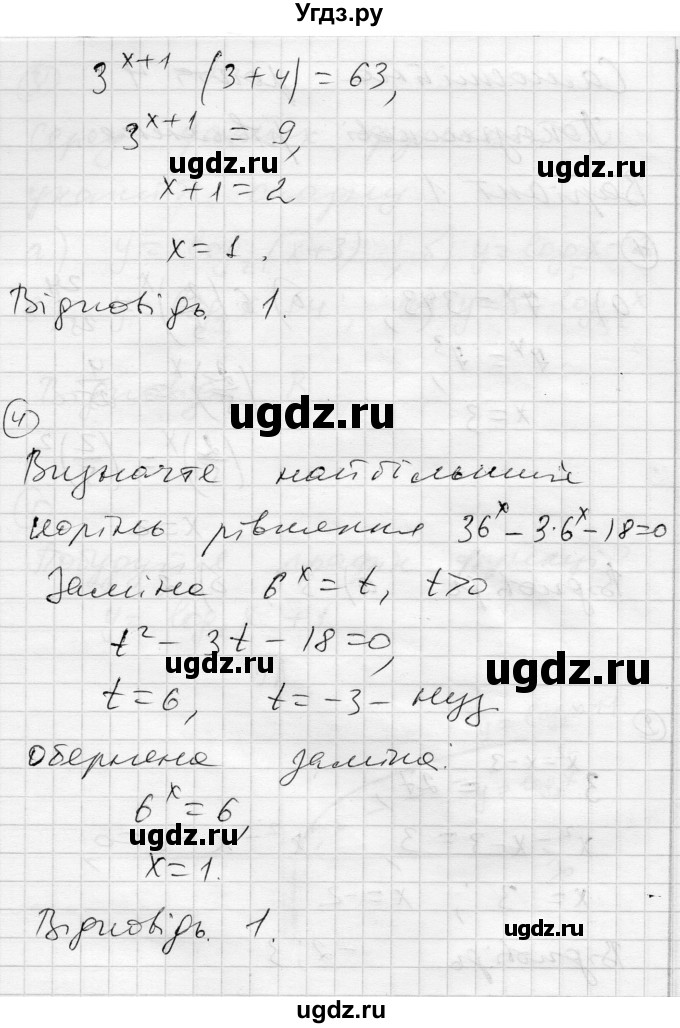 Угдз.ру
3^{x+1} (3+4) = 63,
3^{x+1} = 9,
ugdz.ru
x+1 = 2
x = 1.
Відповідь. 1.
ugdz.ru
4
Визначте найбільший
корінь рівняння 36^x - 3·6^x - 18 = 0
Заміна 6^x = t, t>0
t² - 3t - 18 = 0,
ugdz.ru ugdz.ru
t = 6, t = -3 -
Обернена заміна:
6^x = 6,
ugdz.ru
x = 1.
Відповідь. 1.
ugdz.ru